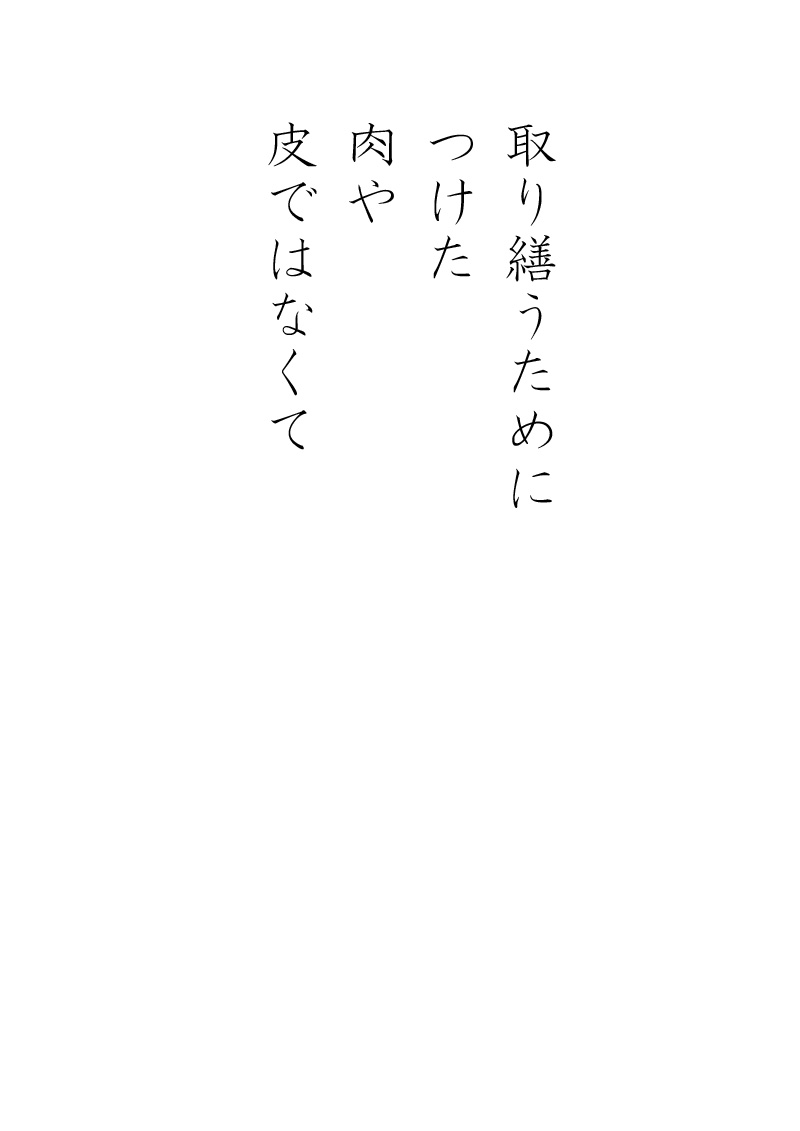 取り繕うために
つけた
肉や
皮ではなくて